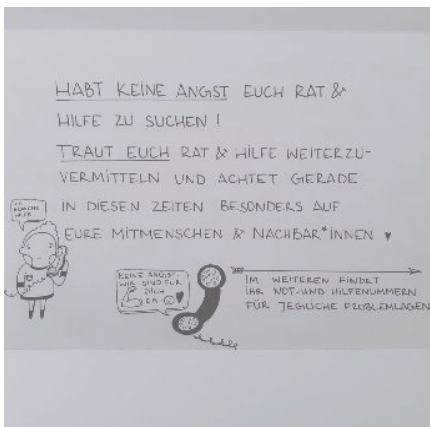 HABT KEINE ANGST EUCH RAT &
HILFE ZU SUCHEN!
TRAUT EUCH RAT & HILFE WEITERZU-
VERMITTELN UND ACHTET GERADE
IN DIESEN ZEITEN BESONDERS AUF
EURE MITMENSCHEN & NACHBAR*INNEN ♥
HILFE
KEINE ANGST.
WIR SIND FÜR
DICH
DA
IM WEITEREN FINDET
IHR NOT- UND HILFENUMMERN
FÜR JEGLICHE PROBLEMLAGEN